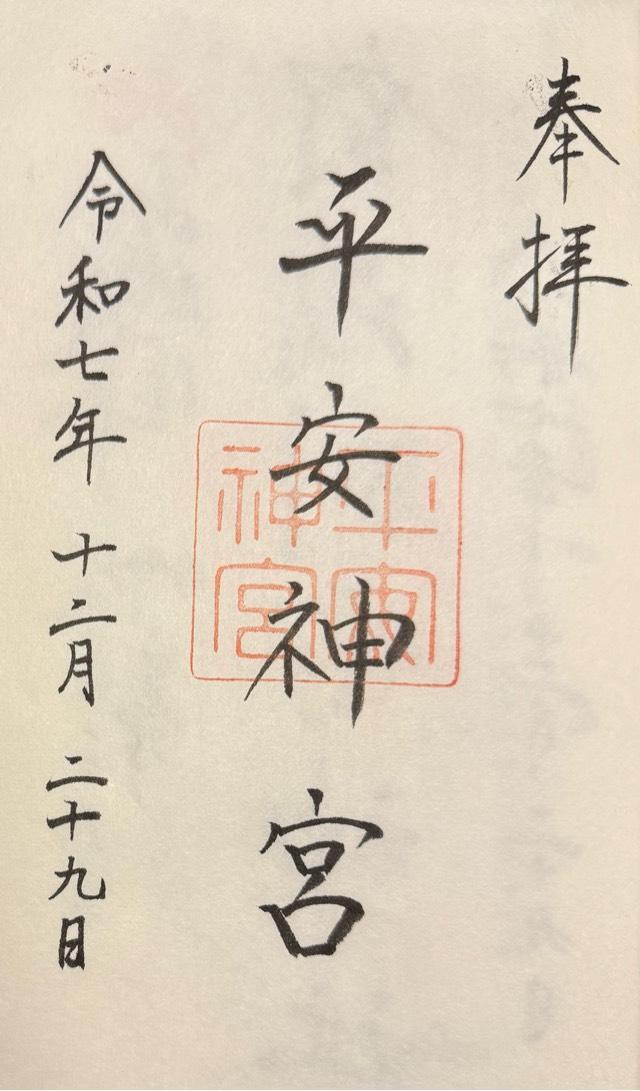 奉拝
平安神宮
平安神宮
令和七年 十二月 二十九日